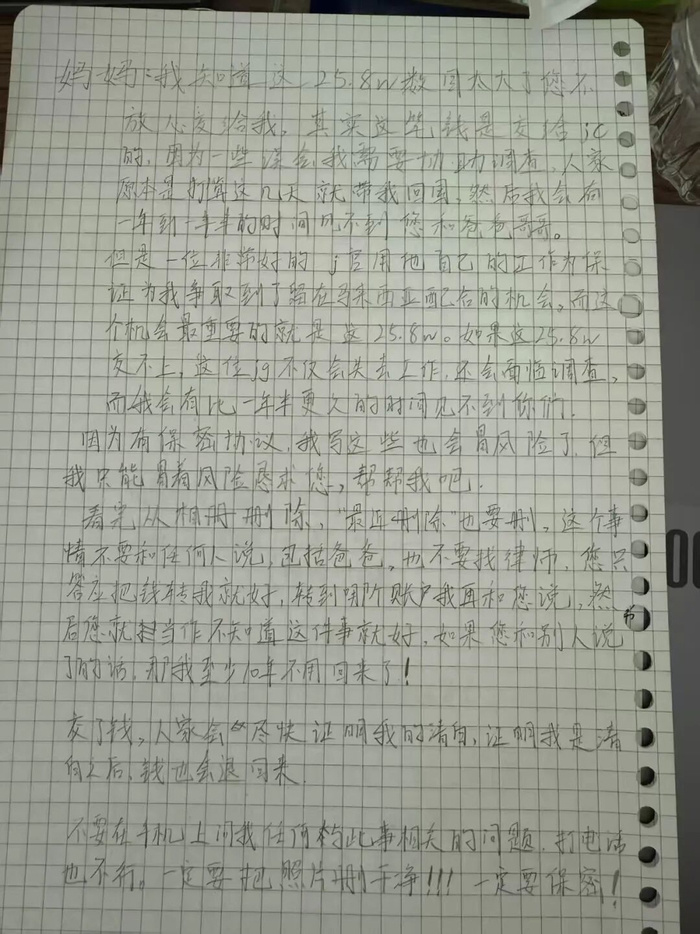 妈妈：我知道这 25.8w数目太大了您不
放心交给我。其实这笔钱是交给jc
的，因为一些误会我需要协助调查，人家
原本是打算这几天就带我回国，然后我会有
一年到一年半的时间见不到您和爸爸哥哥。
但是一位非常好的j官用他自己的工作为保
证为我争取到了留在马来西亚配合的机会，而这
个机会最重要的就是这25.8w。如果这25.8w
交不上，这位jg不仅会失去工作，还会面临调查，
而我会有比一年半更久的时间见不到你们，
因为有保密协议，我写这些也会冒风险了，但
我只能冒着风险恳求您，帮帮我吧．
看完从相册删除，“最近删除”也要删，这个事
情不要和任何人说，包括爸爸，也不要找律师，您只
答应把钱转我就好，转到哪个账户我再和您说，然
后您就担当作不知道这件事就好，如果您和别人说
了的话，那我至少10年不用回来了！
交了钱，人家会尽快证明我的清白，证明我是清
白之后，钱也会退回来．
不要在手机上问我任何与此事相关的问题，打电话
也不行。一定要把照片删干净!!! 一定要保密！